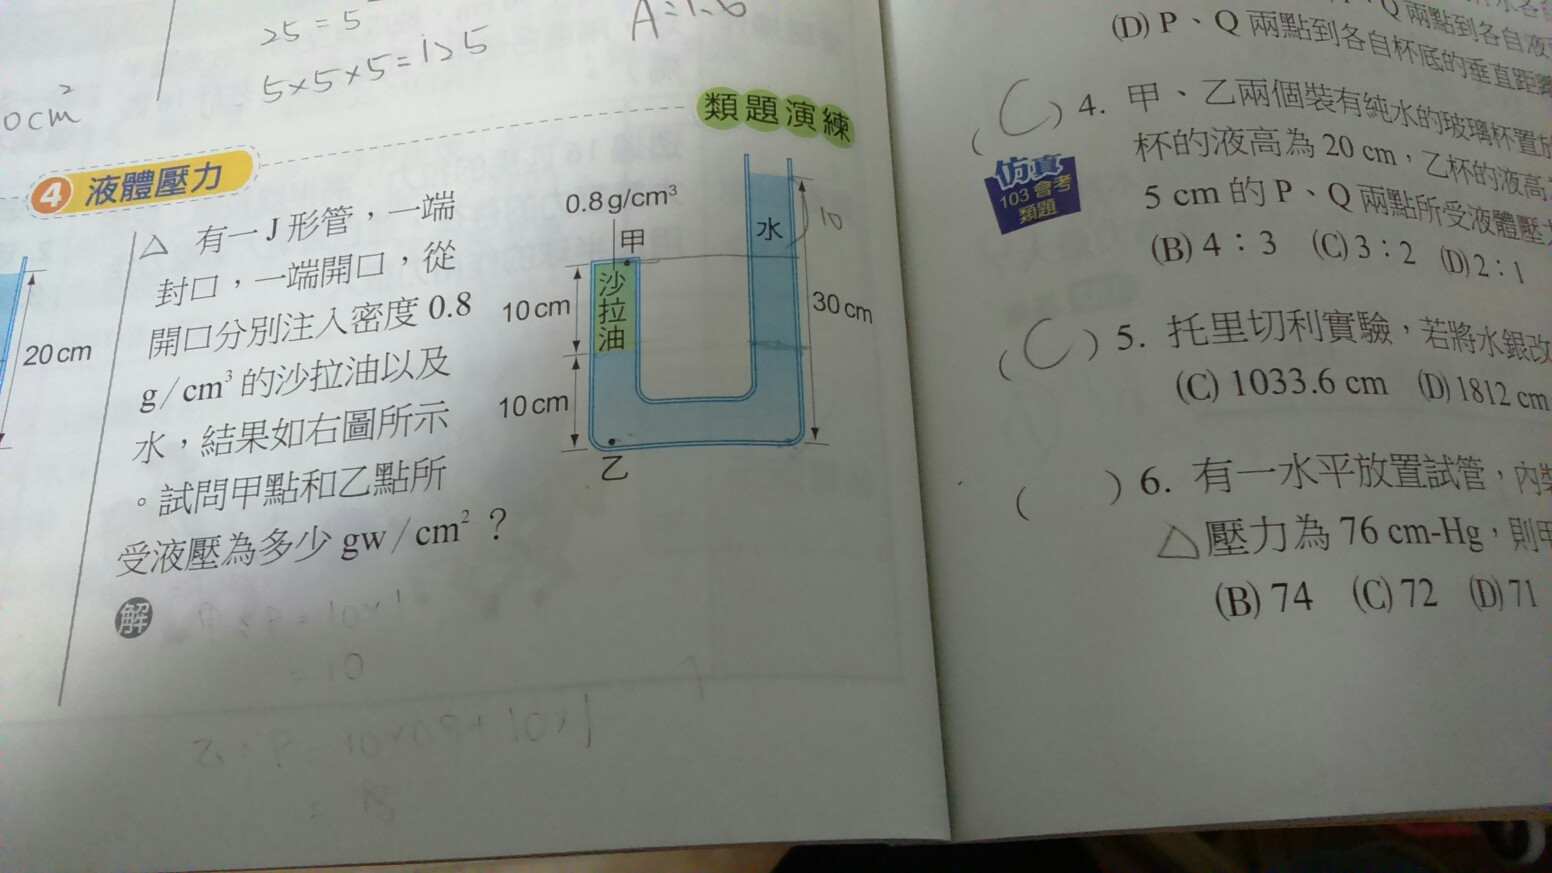 25 = 5
5×5×5=125
0cm²
類題演練
4 液體壓力
△ 有一J形管，一端
封口，一端開口，從
開口分別注入密度 0.8
g/cm³ 的沙拉油以及
水，結果如右圖所示
。試問甲點和乙點所
受液壓為多少 gw/cm²？
解
20cm
0.8g/cm³
甲
沙拉油
水
10
10cm
10cm
30cm
乙
(D) P、Q 兩點到各自杯底的垂直距
( C ) 4. 甲、乙兩個裝有純水的玻璃杯置放
杯的液高為 20 cm，乙杯的液高
仿真
103會考
類題
5 cm 的 P、Q 兩點所受液體壓
(B) 4：3 (C) 3：2 (D) 2：1
( C ) 5. 托里切利實驗，若將水銀改
(C) 1033.6 cm (D) 1812 cm
( ) 6. 有一水平放置試管，內
△壓力為 76 cm-Hg，則
(B) 74 (C) 72 (D) 71